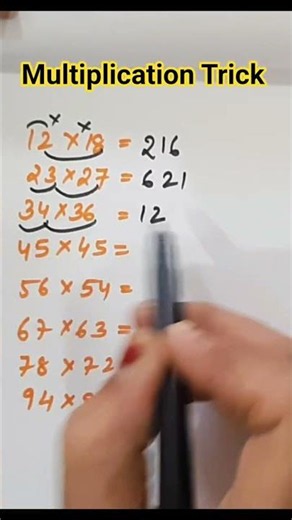 Multiplication Trick
12 × 18 = 216
23 × 27 = 621
34 × 36 = 12
45 × 45 =
56 × 54 =
67 × 63 =
78 × 72
94 ×